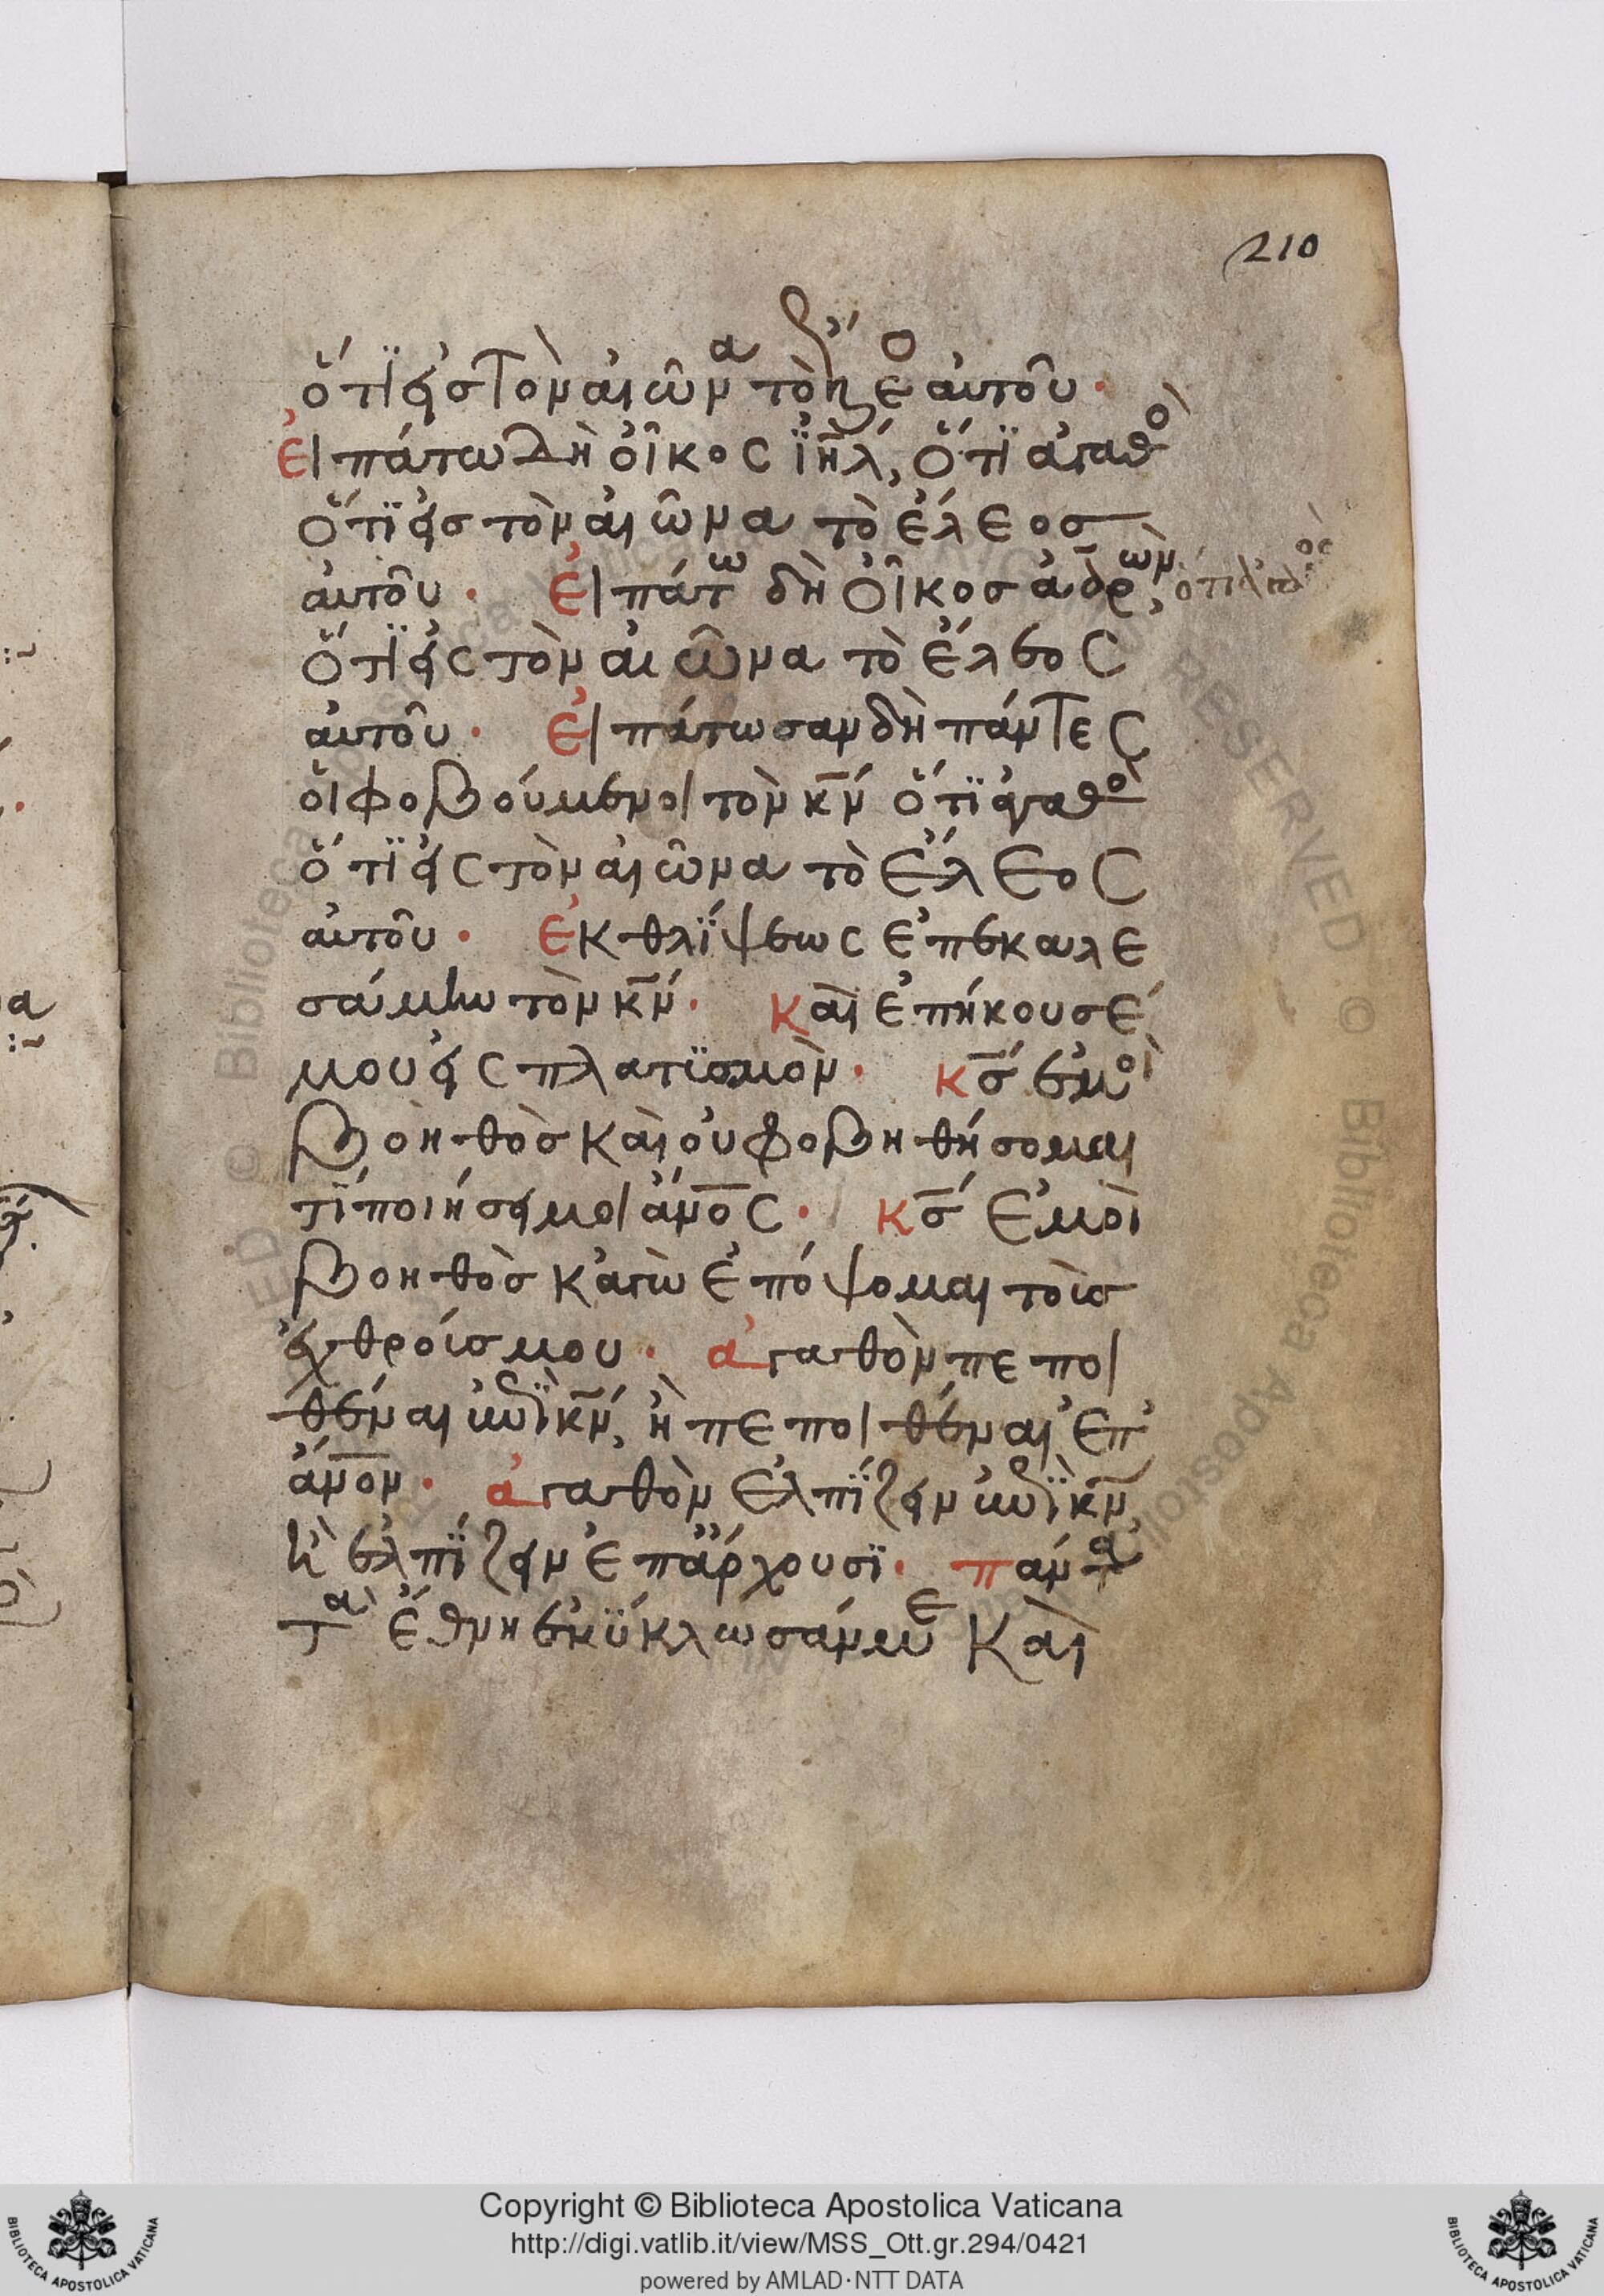 210
ὅτι εἰς τὸν αἰῶνα τὸ ἔλεος αὐτοῦ·
Εἰπάτω δὴ οἶκος ἰηλ, ὅτι ἀγαθὸς
ὅτι εἰς τὸν αἰῶνα τὸ ἔλεος
αὐτοῦ· Εἰπάτω δὴ οἶκος ἀαρών, ὅτι ἀγαθὸς
ὅτι εἰς τὸν αἰῶνα τὸ ἔλεος
αὐτοῦ· Εἰπάτωσαν δὴ πάντες
οἱ φοβούμενοι τὸν κν ὅτι ἀγαθὸς
ὅτι εἰς τὸν αἰῶνα τὸ ἔλεος
αὐτοῦ· Ἐκ θλίψεως ἐπεκαλε
σάμην τὸν κν· Καὶ ἐπήκουσέ
μου εἰς πλατισμὸν· κς ἐμοὶ
βοηθὸς καὶ οὐ φοβηθήσομαι
τί ποιήσει μοι ἄνος· κς ἐμοὶ
βοηθὸς κἀγὼ ἐπόψομαι τοὶς
ἐχθροίς μου· ἀγαθὸν πεποι
θέναι ἐπὶ κν, ἢ πεποιθέναι ἐπ'
ἄνον· ἀγαθὸν ἐλπίζειν ἐπὶ κν,
ἢ ἐλπίζειν ἐπ' ἄρχουσι· πάντα
τὰ ἔθνη ἐκύκλωσάν με καὶ
Copyright © Biblioteca Apostolica Vaticana
http://digi.vatlib.it/view/MSS_Ott.gr.294/0421
powered by AMLAD·NTT DATA
BIBLIOTECA APOSTOLICA VATICANA
BIBLIOTECA APOSTOLICA VATICANA